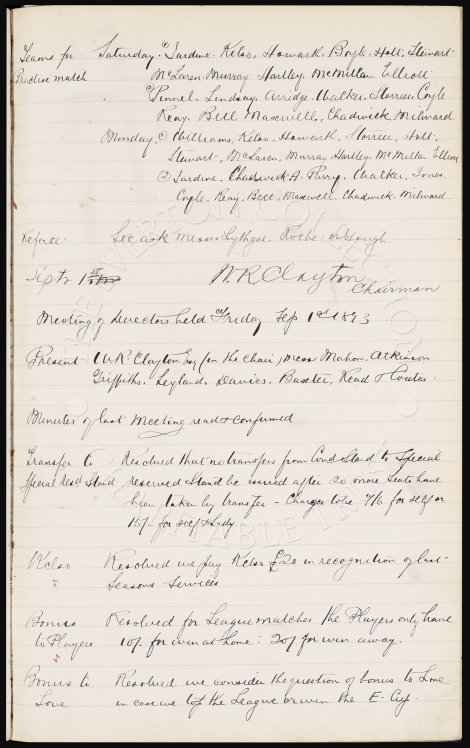 Teams for Saturday. ① Jardine. Kelso. Howarth. Boyle. Holt. Stewart
Practise match McLaren Murray Hartley. McMillan Elliott
② Pinnel. Lindsay. Arridge. Walker. Storrier Coyle
Reay. Bell Maxwell. Chadwick. Milward
Monday. ① Williams. Kelso. Howarth Storrier, Holt.
Stewart. McLaren. Murray Hartley. McMillan Elliott
② Jardine. Chadwick A. Parry. Walker. Jones
Coyle. Reay. Bell. Maxwell. Chadwick. Milward
Referee Sec. ask Messrs Lythgoe. Roche or Gough
Sept 1st
W. R. Clayton
Chairman
Meeting of Directors held Friday Sep 1st 1893
Present W.R. Clayton Esq (in the chair) Messrs Mahon, Atkinson
Griffiths. Leyland. Davies. Baxter. Read & Coates.
Minutes of last Meeting read & confirmed
Transfer to Resolved that no transfers from Cov'd Stand to Special
Special Resd Stand reserved Stand be issued after 20 more Seats have
been taken by transfer - Charges to be 7/6 for self or
15/- for self & Lady
Kelso Resolved we pay Kelso £20 in recognition of last
Seasons Services
Bonus Resolved for League matches the Players only have
to Players 10/- for win at home: 20/- for win away.
Bonus to Resolved we consider the question of bonus to
in case we top the League or win the E. Cup.